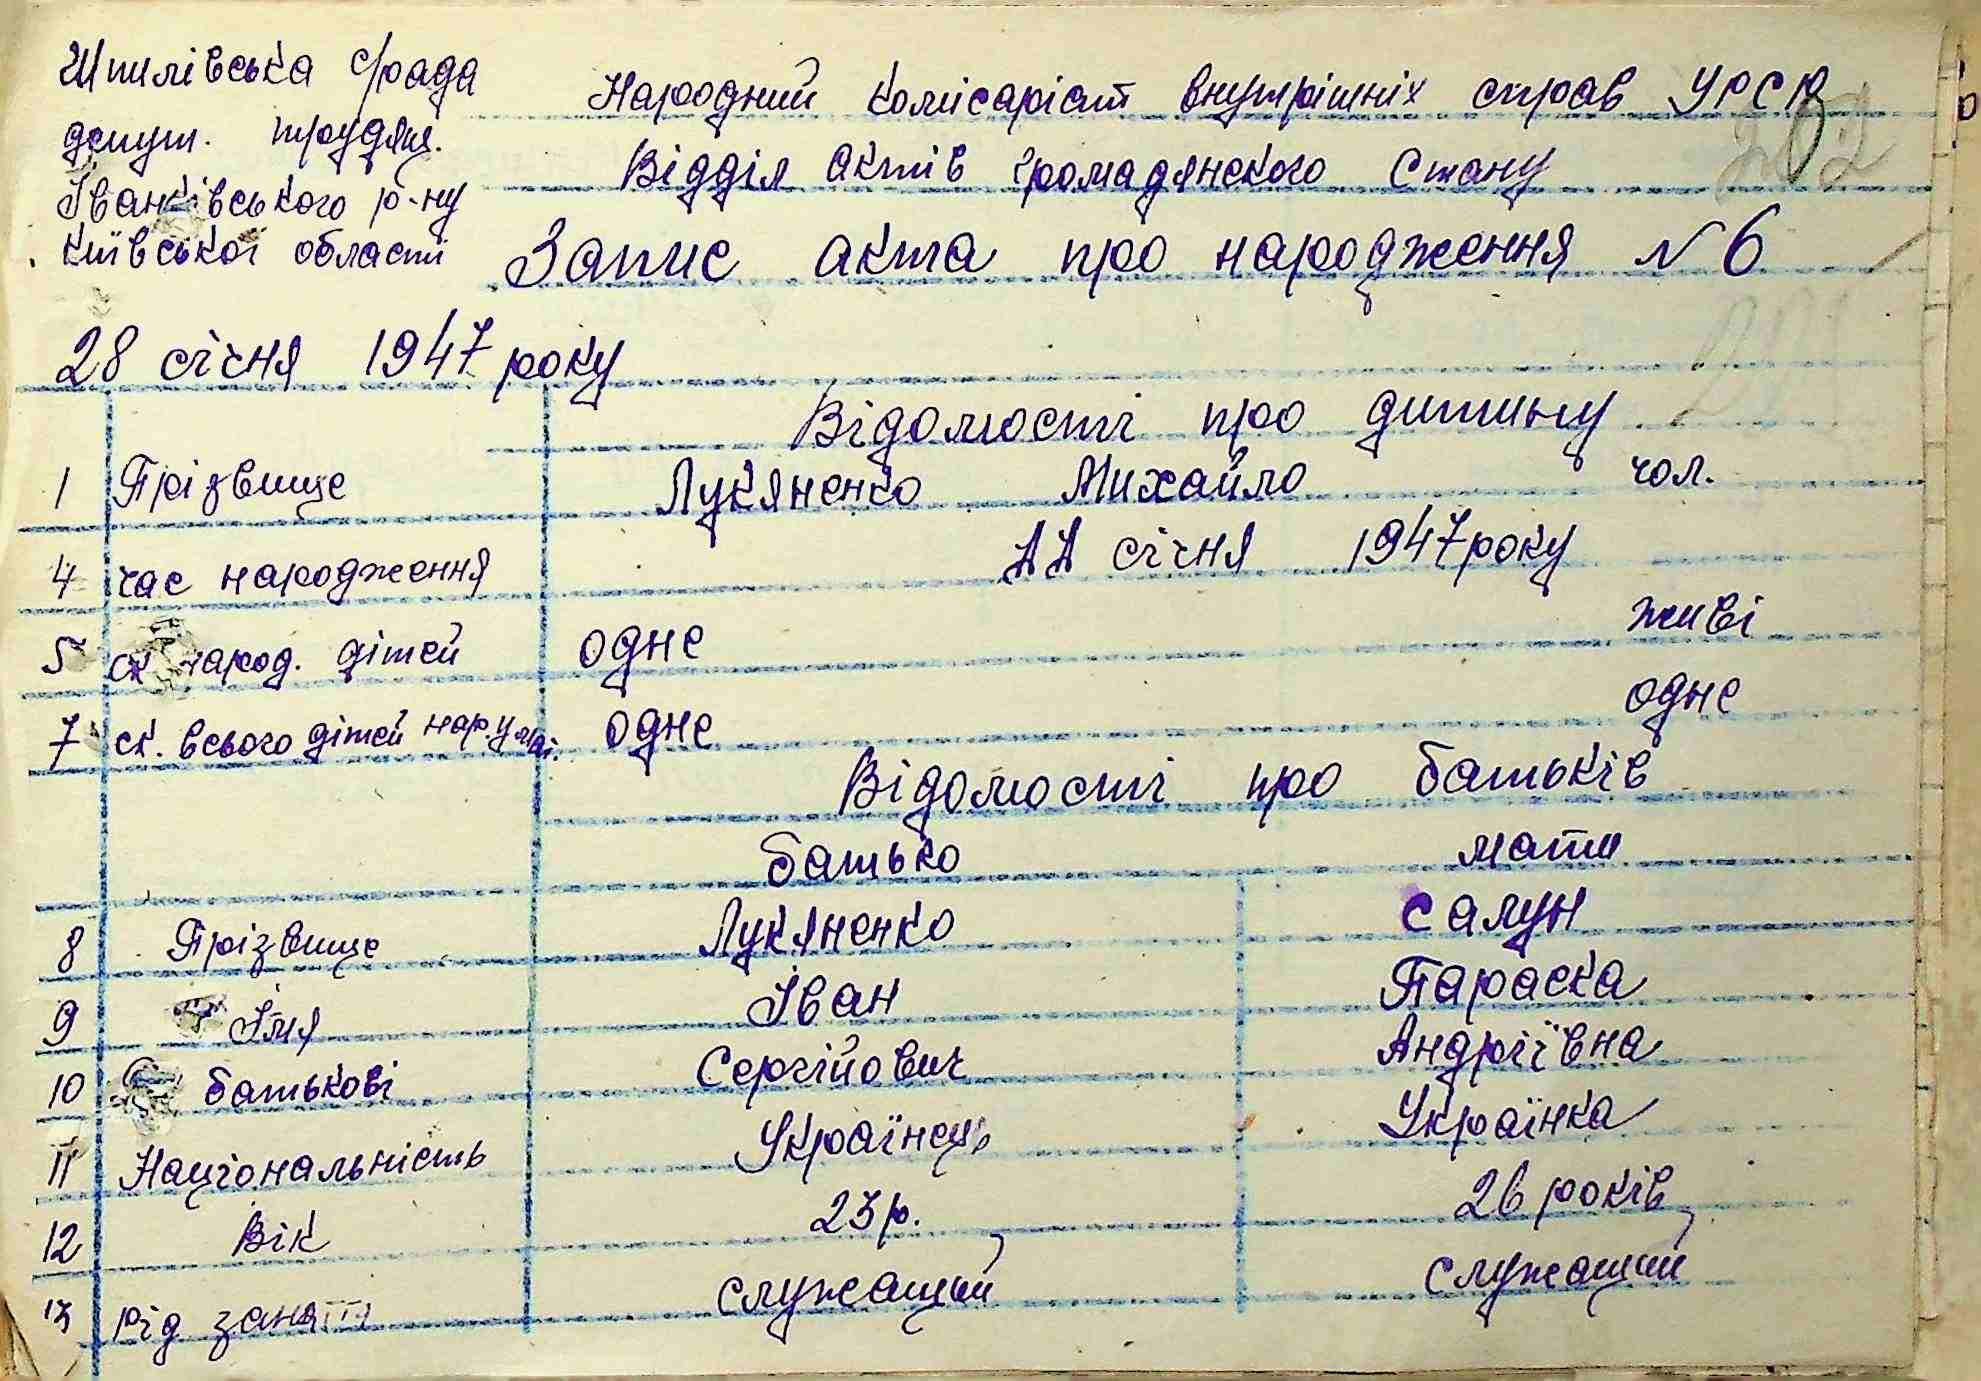 Шпилівська с/рада
депут. трудящ.
Іванківського р-ну
Київської області
Народний Комісаріат внутрішніх справ УРСР
Відділ актів громадянского стану
Запис акта про народження № 6
28 січня 1947 року
Відомості про дитину
1 Прізвище Лукяненко Михайло чол.
4 час народження 11 січня 1947 року
5 ск. народ. дітей одне живі
7 ск. всього дітей нар. у одне одне
Відомості про батьків
батько мати
8 Прізвище Лукяненко Салун
9 Імя Іван Параска
10 батькові Сергійович Андріївна
11 Національність Українець Українка
12 Вік 23 р. 26 років
13 рід занять служащий служащий